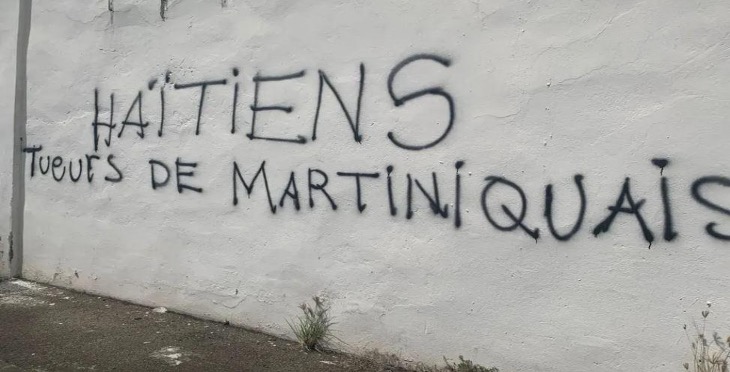 HAÏTIENS
TUEURS DE MARTINIQUAIS